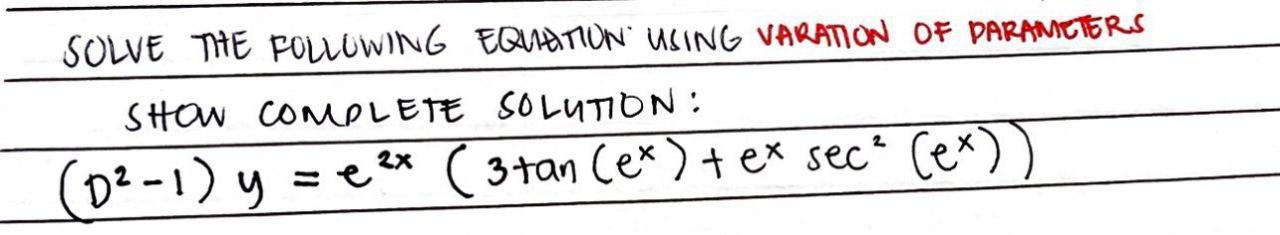 SOLVE THE FOLLOWING EQUATION USING VARATION OF PARAMETERS
SHOW COMPLETE SOLUTION:
(D² -1) y = e²ˣ (3tan (eˣ) + eˣ sec² (eˣ))